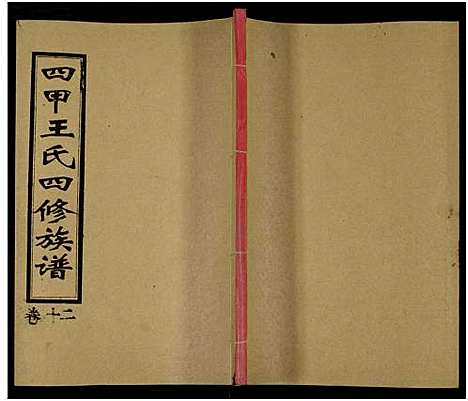 四甲王氏四修族谱
卷十二